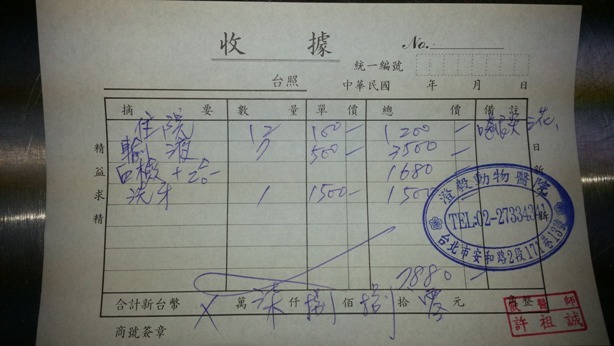 收據
No.
統一編號
台照 中華民國 年 月 日
摘要 數量 單價 總價 備註
住院 12 100- 1200-
輸液 7 500- 3500-
血檢 1680-
洗牙 1 1500- 1500
精益求精
動物醫院
TEL:02-2733434
台北市安和路2段17
7880-
合計新台幣 X 萬 柒 仟 捌 佰 捌 拾 零 元 整
商號簽章
獸醫師
許祖誠